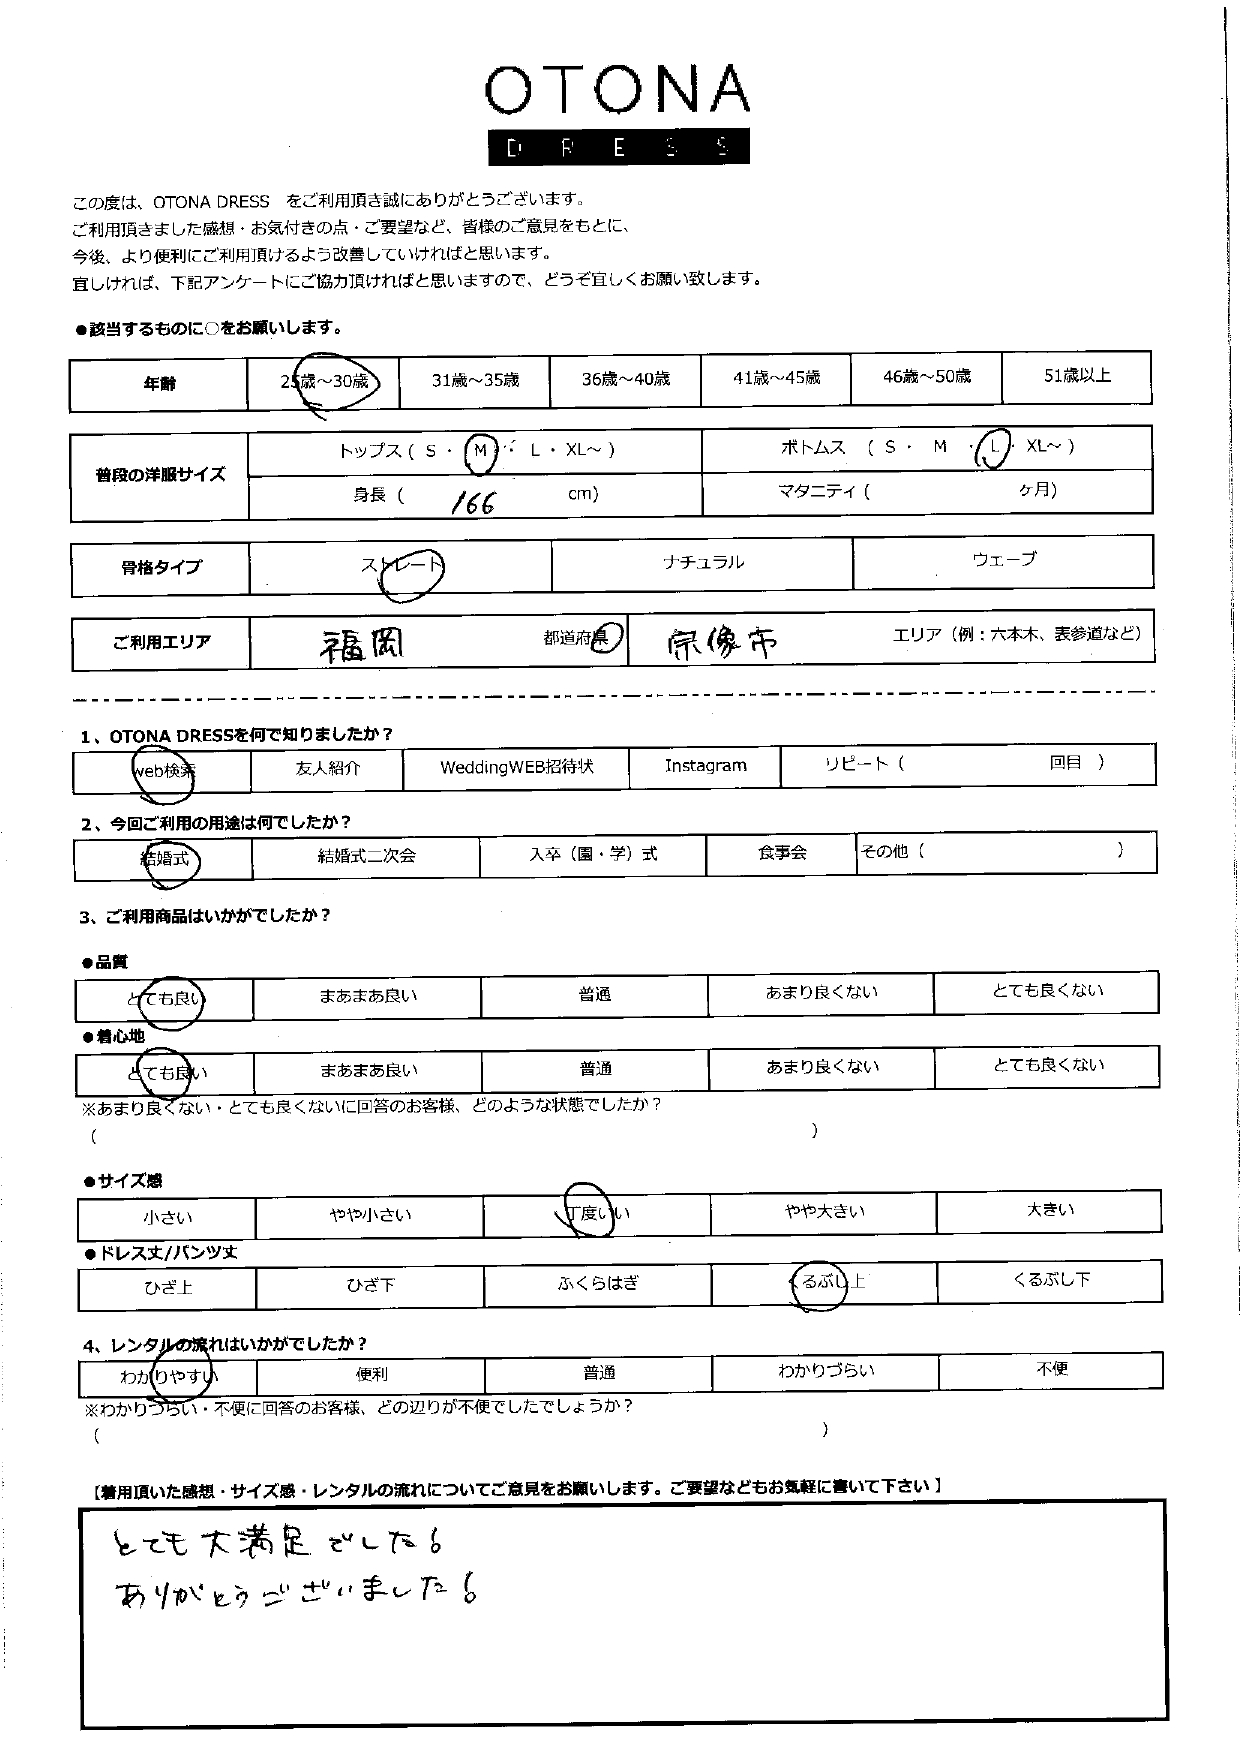 OTONA
DRESS
この度は、OTONA DRESS をご利用頂き誠にありがとうございます。
ご利用頂きました感想・お気付きの点・ご要望など、皆様のご意見をもとに、
今後、より便利にご利用頂けるよう改善していければと思います。
宜しければ、下記アンケートにご協力頂ければと思いますので、どうぞ宜しくお願い致します。
●該当するものに○をお願いします。
年齢 25歳～30歳 31歳～35歳 36歳～40歳 41歳～45歳 46歳～50歳 51歳以上
普段の洋服サイズ トップス ( S ・ M ・ L ・ XL～ ) ボトムス ( S ・ M ・ L ・ XL～ )
身長 ( 166 cm) マタニティ ( ヶ月)
骨格タイプ ストレート ナチュラル ウェーブ
ご利用エリア 福岡 都道府県 宗像市 エリア（例：六本木、表参道など）
1、OTONA DRESSを何で知りましたか？
web検索 友人紹介 WeddingWEB招待状 Instagram リピート ( 回目 )
2、今回ご利用の用途は何でしたか？
結婚式 結婚式二次会 入卒（園・学）式 食事会 その他 ( )
3、ご利用商品はいかがでしたか？
●品質
とても良い まあまあ良い 普通 あまり良くない とても良くない
●着心地
とても良い まあまあ良い 普通 あまり良くない とても良くない
※あまり良くない・とても良くないに回答のお客様、どのような状態でしたか？
( )
●サイズ感
小さい やや小さい 丁度いい やや大きい 大きい
●ドレス丈/パンツ丈
ひざ上 ひざ下 ふくらはぎ くるぶし上 くるぶし下
4、レンタルの流れはいかがでしたか？
わかりやすい 便利 普通 わかりづらい 不便
※わかりづらい・不便に回答のお客様、どの辺りが不便でしたでしょうか？
( )
【着用頂いた感想・サイズ感・レンタルの流れについてご意見をお願いします。ご要望などもお気軽に書いて下さい】
とても大満足でした！
ありがとうございました！